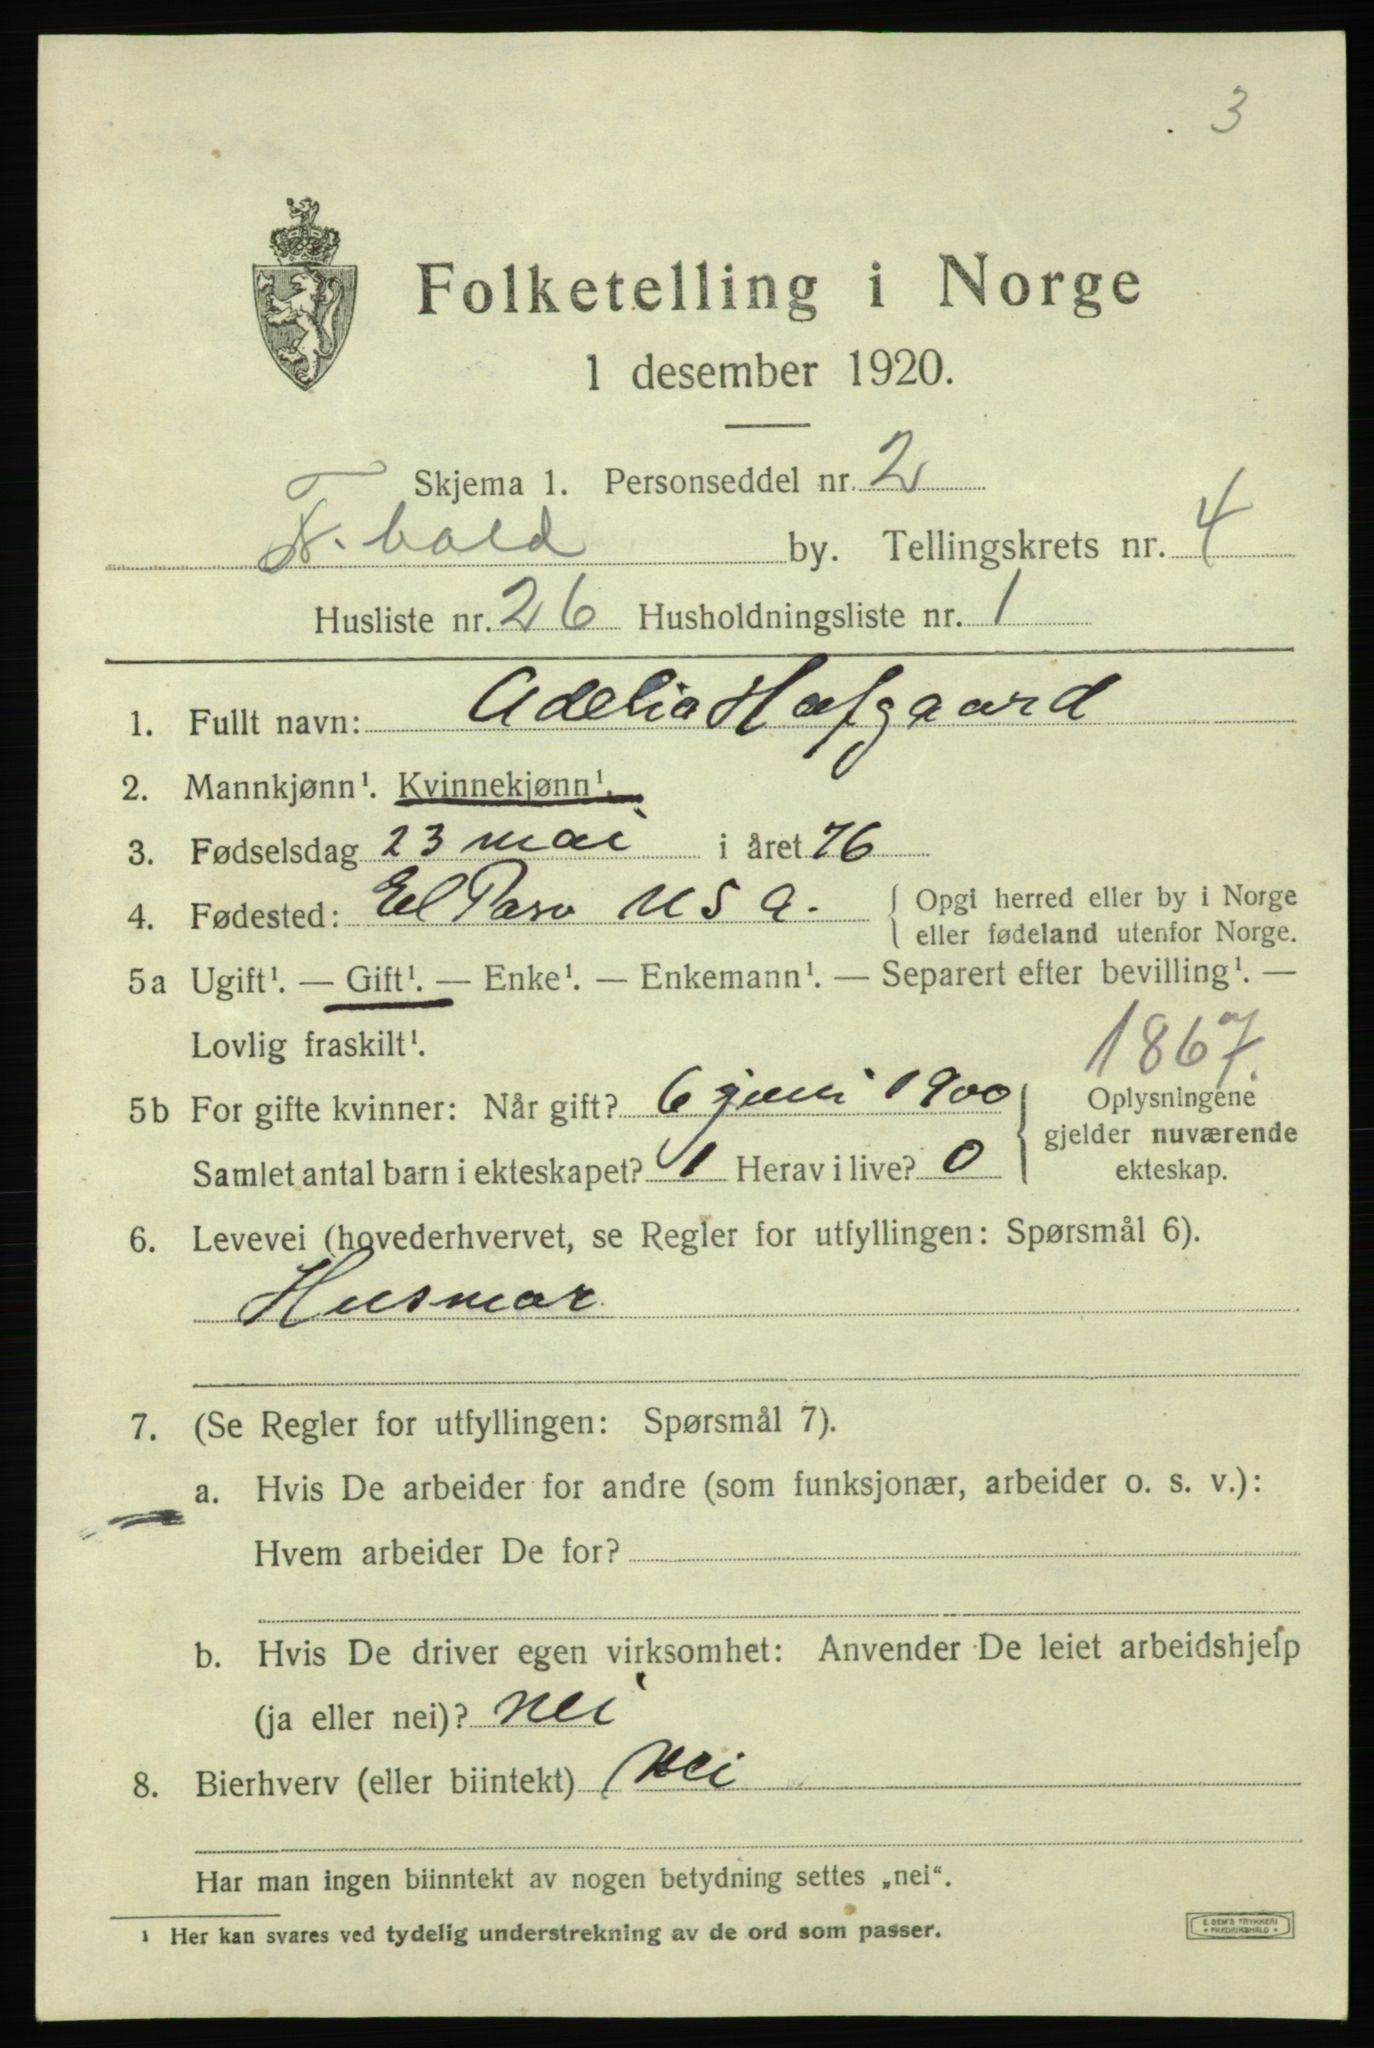 3
Folketelling i Norge
1 desember 1920.
Skjema 1. Personseddel nr. 2
F.hald by. Tellingskrets nr. 4
Husliste nr. 26 Husholdningsliste nr. 1
1. Fullt navn: Adelia Hafgaard
2. Mannkjønn¹. Kvinnekjønn¹.
3. Fødselsdag 23 mai i året 76
4. Fødested: El Paso U S A. { Opgi herred eller by i Norge
eller fødeland utenfor Norge.
5a Ugift¹. — Gift¹. — Enke¹. — Enkemann¹. — Separert efter bevilling¹. —
Lovlig fraskilt¹.
1867.
5b For gifte kvinner: Når gift? 6 juni 1900
Samlet antal barn i ekteskapet? 1 Herav i live? 0
Oplysningene
gjelder nuværende
ekteskap.
6. Levevei (hovederhvervet, se Regler for utfyllingen: Spørsmål 6).
Husmor
7. (Se Regler for utfyllingen: Spørsmål 7).
a. Hvis De arbeider for andre (som funksjonær, arbeider o. s. v.):
Hvem arbeider De for?
b. Hvis De driver egen virksomhet: Anvender De leiet arbeidshjelp
(ja eller nei)? nei
8. Bierhverv (eller biintekt) Nei
Har man ingen biinntekt av nogen betydning settes „nei“.
¹ Her kan svares ved tydelig understrekning av de ord som passer.
E. SEM'S TRYKKERI
• FREDRIKSHALD •